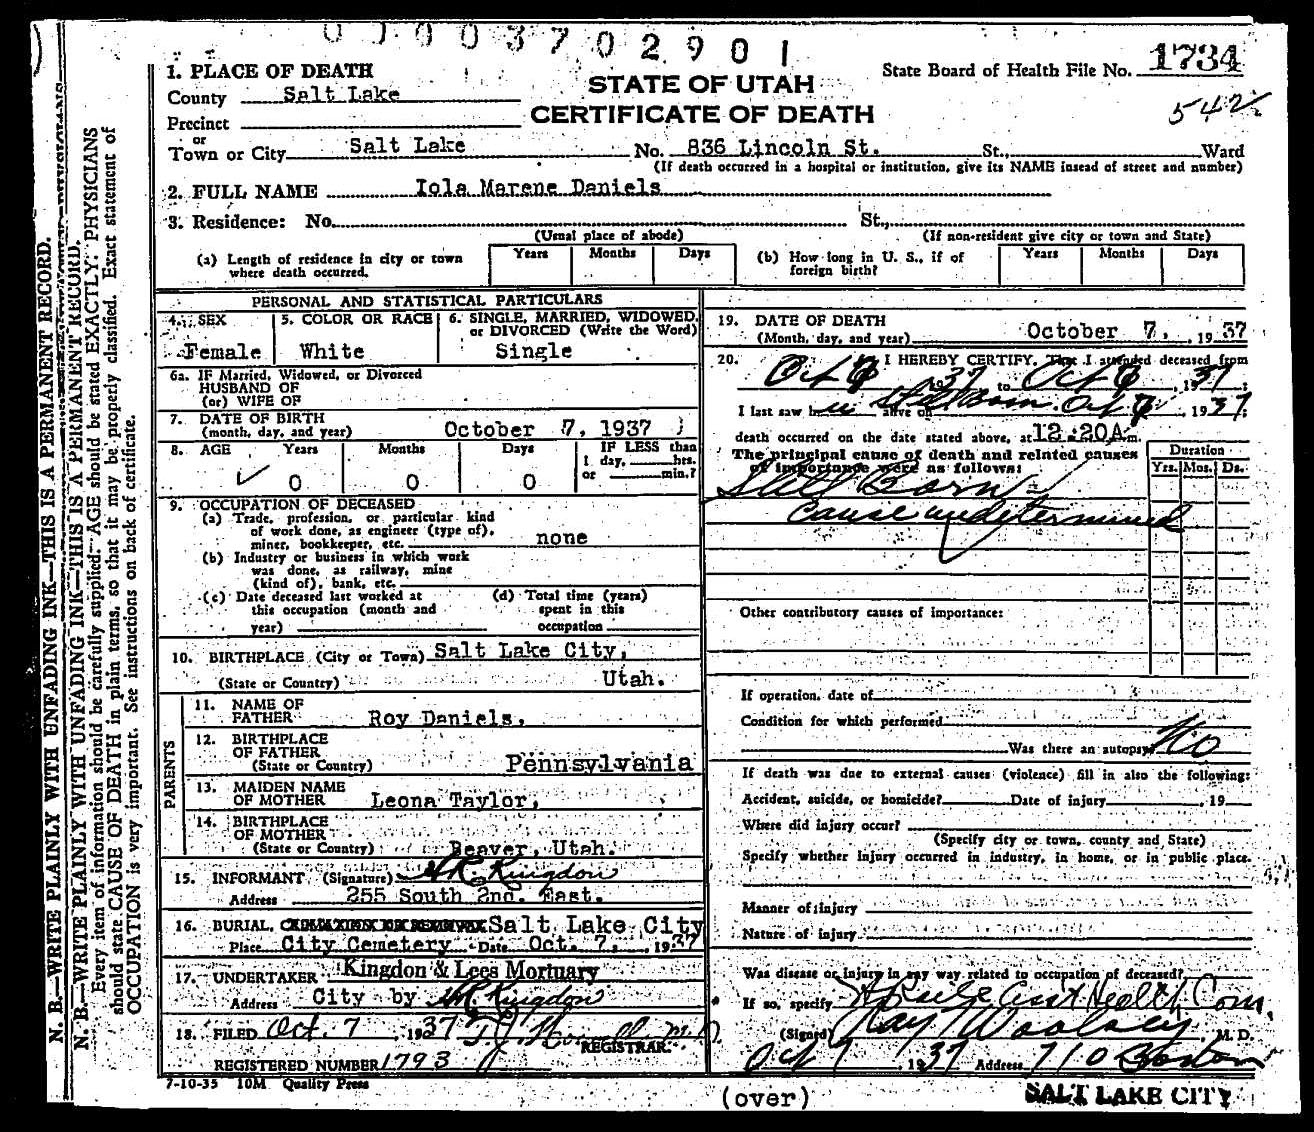 0003702901
1. PLACE OF DEATH
STATE OF UTAH
CERTIFICATE OF DEATH
State Board of Health File No. 1734
542
County Salt Lake
Precinct
or
Town or City Salt Lake No. 836 Lincoln St. St., Ward
(If death occurred in a hospital or institution, give its NAME insead of street and number)
2. FULL NAME Iola Marene Daniels
3. Residence: No. St.,
(Usual place of abode) (If non-resident give city or town and State)
(a) Length of residence in city or town where death occurred. Years Months Days
(b) How long in U. S., if of foreign birth? Years Months Days
PERSONAL AND STATISTICAL PARTICULARS
4. SEX Female
5. COLOR OR RACE White
6. SINGLE, MARRIED, WIDOWED, or DIVORCED (Write the Word) Single
6a. IF Married, Widowed, or Divorced
HUSBAND OF
(or) WIFE OF
7. DATE OF BIRTH
(month, day, and year) October 7, 1937
8. AGE Years Months Days IF LESS than
1 day, hrs.
or min.?
0 0 0
9. OCCUPATION OF DECEASED
(a) Trade, profession, or particular kind
of work done, as engineer (type of),
miner, bookkeeper, etc. none
(b) Industry or business in which work
was done, as railway, mine
(kind of), bank, etc.
(c) Date deceased last worked at
this occupation (month and
year)
(d) Total time (years)
spent in this
occupation
10. BIRTHPLACE (City or Town) Salt Lake City,
(State or Country) Utah.
PARENTS
11. NAME OF
FATHER Roy Daniels,
12. BIRTHPLACE
OF FATHER
(State or Country) Pennsylvania
13. MAIDEN NAME
OF MOTHER Leona Taylor,
14. BIRTHPLACE
OF MOTHER
(State or Country) Beaver, Utah.
15. INFORMANT (Signature) Kingdon
Address 255 South 2nd. East.
16. BURIAL, Salt Lake City
Place City Cemetery Date Oct. 7, 1937
17. UNDERTAKER Kingdon & Lees Mortuary
Address City by Kingdon
18. FILED Oct. 7 1937 M.D.
REGISTRAR.
REGISTERED NUMBER 1793
7-10-35 10M Quality Press
19. DATE OF DEATH
(Month, day, and year) October 7, 1937
20. I HEREBY CERTIFY, That I attended deceased from
Oct 1937 to Oct 1937;
I last saw alive on Still Born Oct 7 1937;
death occurred on the date stated above, at 12:20A m.
The principal cause of death and related causes
of importance were as follows:
Duration
Yrs. Mos. Ds.
Still Born
Cause undetermined
Other contributory causes of importance:
If operation, date of
Condition for which performed
Was there an autopsy No
If death was due to external causes (violence) fill in also the following:
Accident, suicide, or homicide? Date of injury , 19
Where did injury occur?
(Specify city or town, county and State)
Specify whether injury occurred in industry, in home, or in public place.
Manner of injury
Nature of injury
Was disease or injury in any way related to occupation of deceased?
If so, specify Asst Health Com.
(Signed) Ray Woolsey, M. D.
Oct 7, 1937 Address 710 Boston
SALT LAKE CITY
(over)
N. B.—WRITE PLAINLY WITH UNFADING INK—THIS IS A PERMANENT RECORD.
N. B.—WRITE PLAINLY WITH UNFADING INK—THIS IS A PERMANENT RECORD.
Every item of information should be carefully supplied. AGE should be stated EXACTLY. PHYSICIANS
should state CAUSE OF DEATH in plain terms, so that it may be properly classified. Exact statement of
OCCUPATION is very important. See instructions on back of certificate.